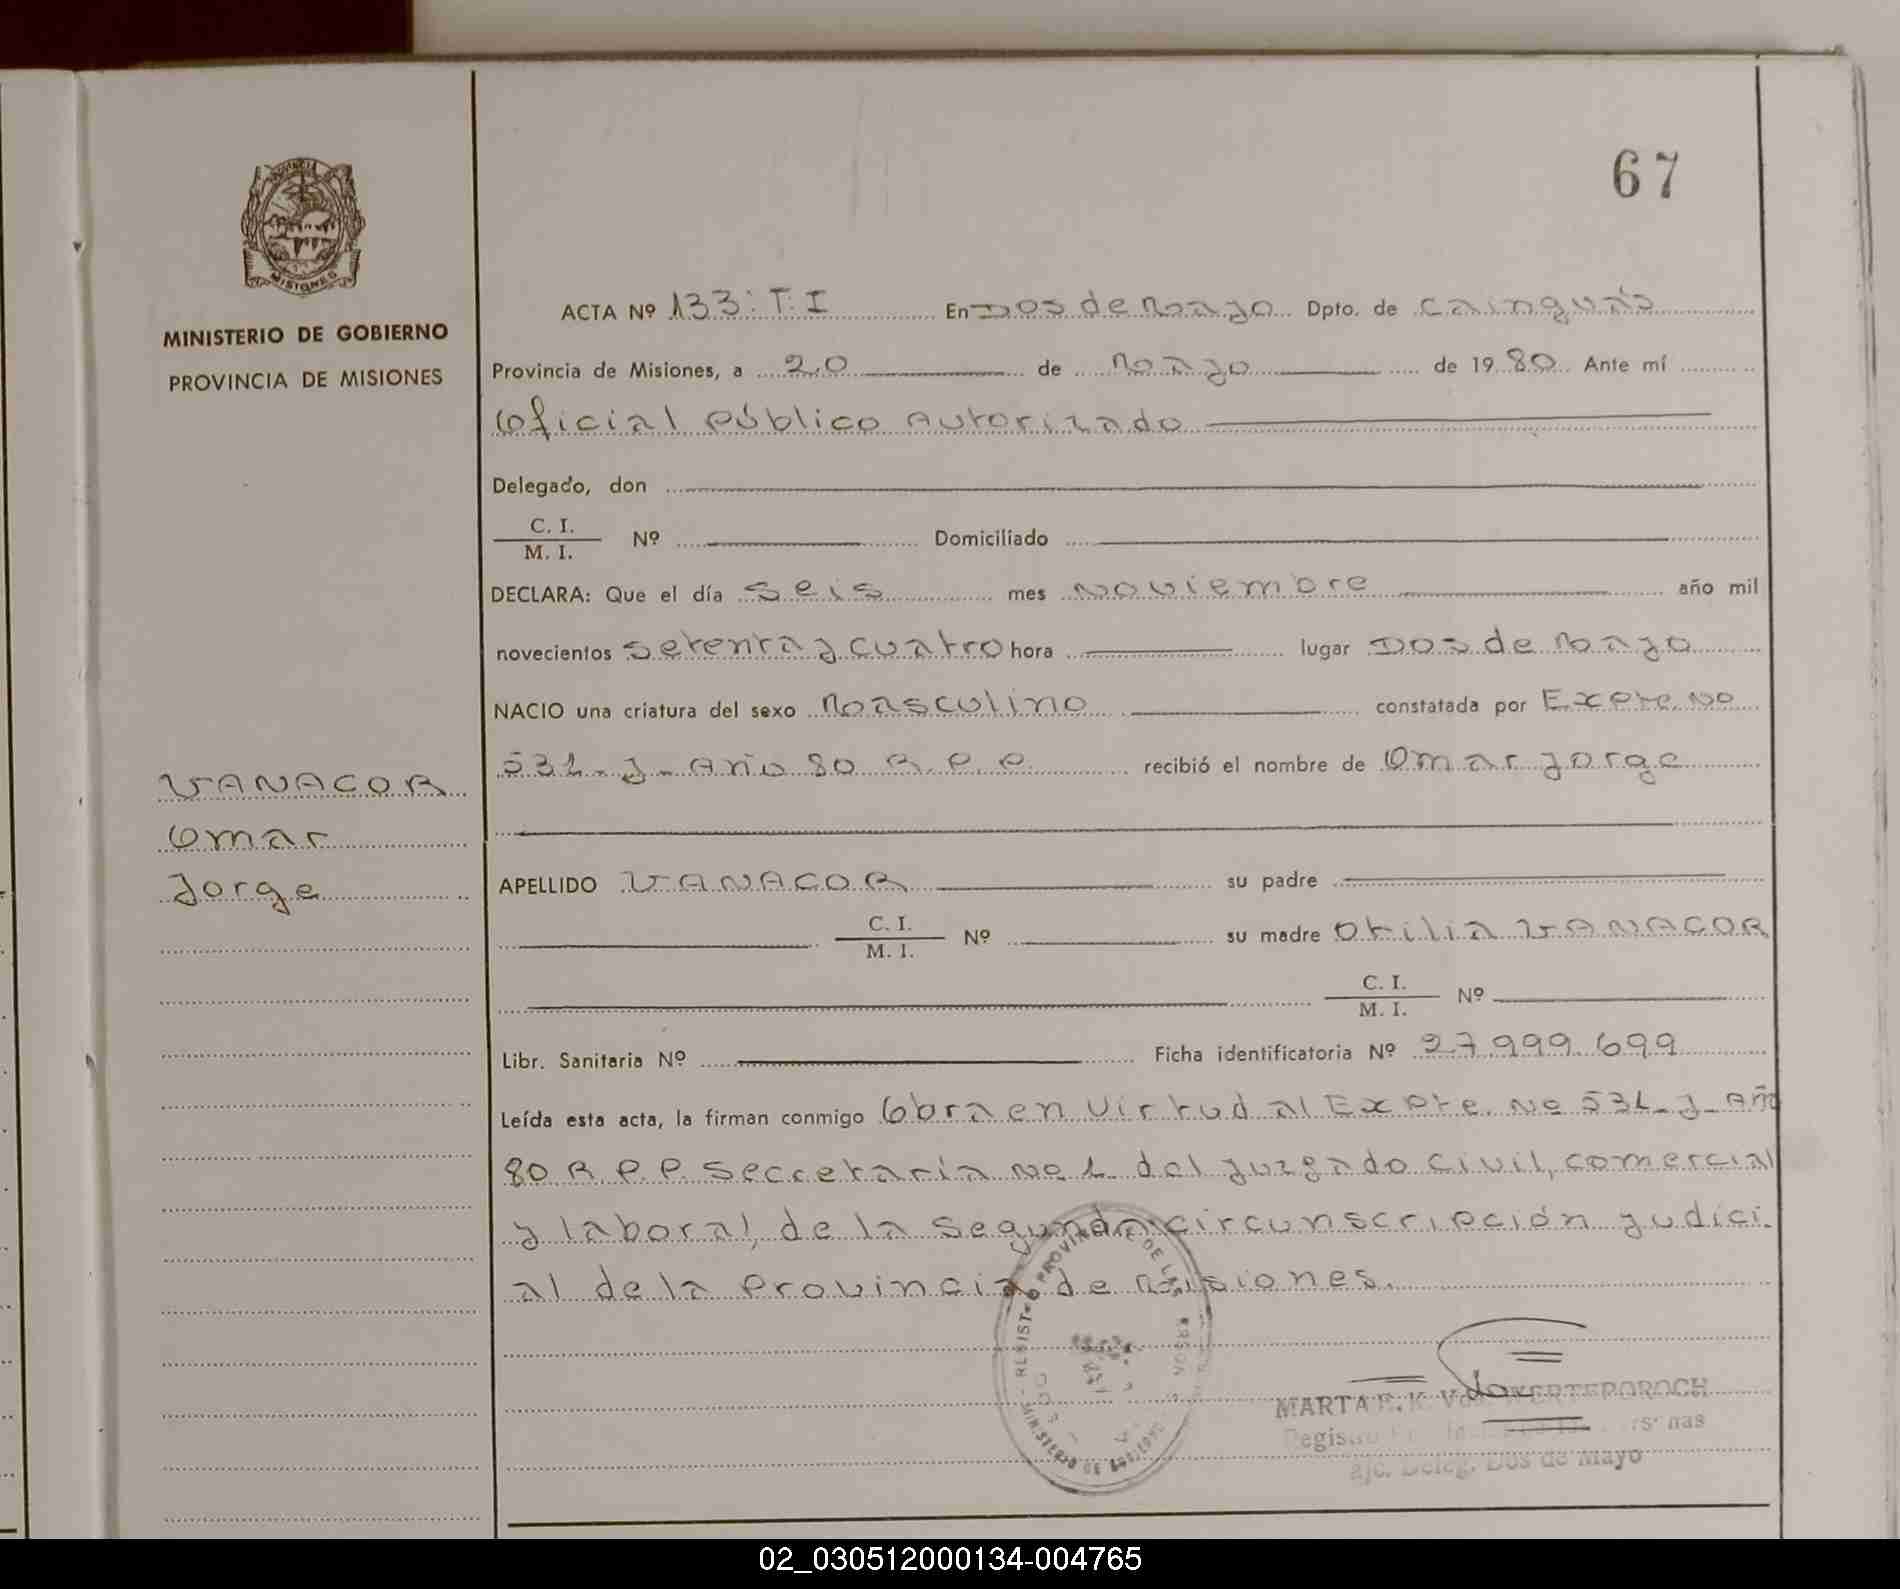 67
MINISTERIO DE GOBIERNO
PROVINCIA DE MISIONES
MISIONES
VANACOR
Omar
Jorge
ACTA Nº 133:T:I En Dos de Mayo Dpto. de Cainguás
Provincia de Misiones, a 20 de Mayo de 1980 Ante mí
Oficial Público Autorizado
Delegado, don
C. I.
M. I. Nº Domiciliado
DECLARA: Que el día seis mes noviembre año mil
novecientos setenta y cuatro hora lugar Dos de Mayo
NACIO una criatura del sexo Masculino constatada por Expte. No
531-J-Año 80 R.P.P. recibió el nombre de Omar Jorge
APELLIDO VANACOR su padre
C. I.
M. I. Nº su madre Otilia VANACOR
C. I.
M. I. Nº
Libr. Sanitaria Nº Ficha identificatoria Nº 27.999.699
Leída esta acta, la firman conmigo Obra en virtud al Expte. No 531-J-Año
80 R.P.P. Secretaría No 1 del Juzgado Civil, comercial
y laboral, de la segunda circunscripción judici-
al de la Provincia de Misiones.
REGISTRO PROVINCIAL DE LAS
MINISTERIO DE GOBIERNO
MARTA E. K. Vda.
Deleg. Dos de Mayo
02_030512000134-004765